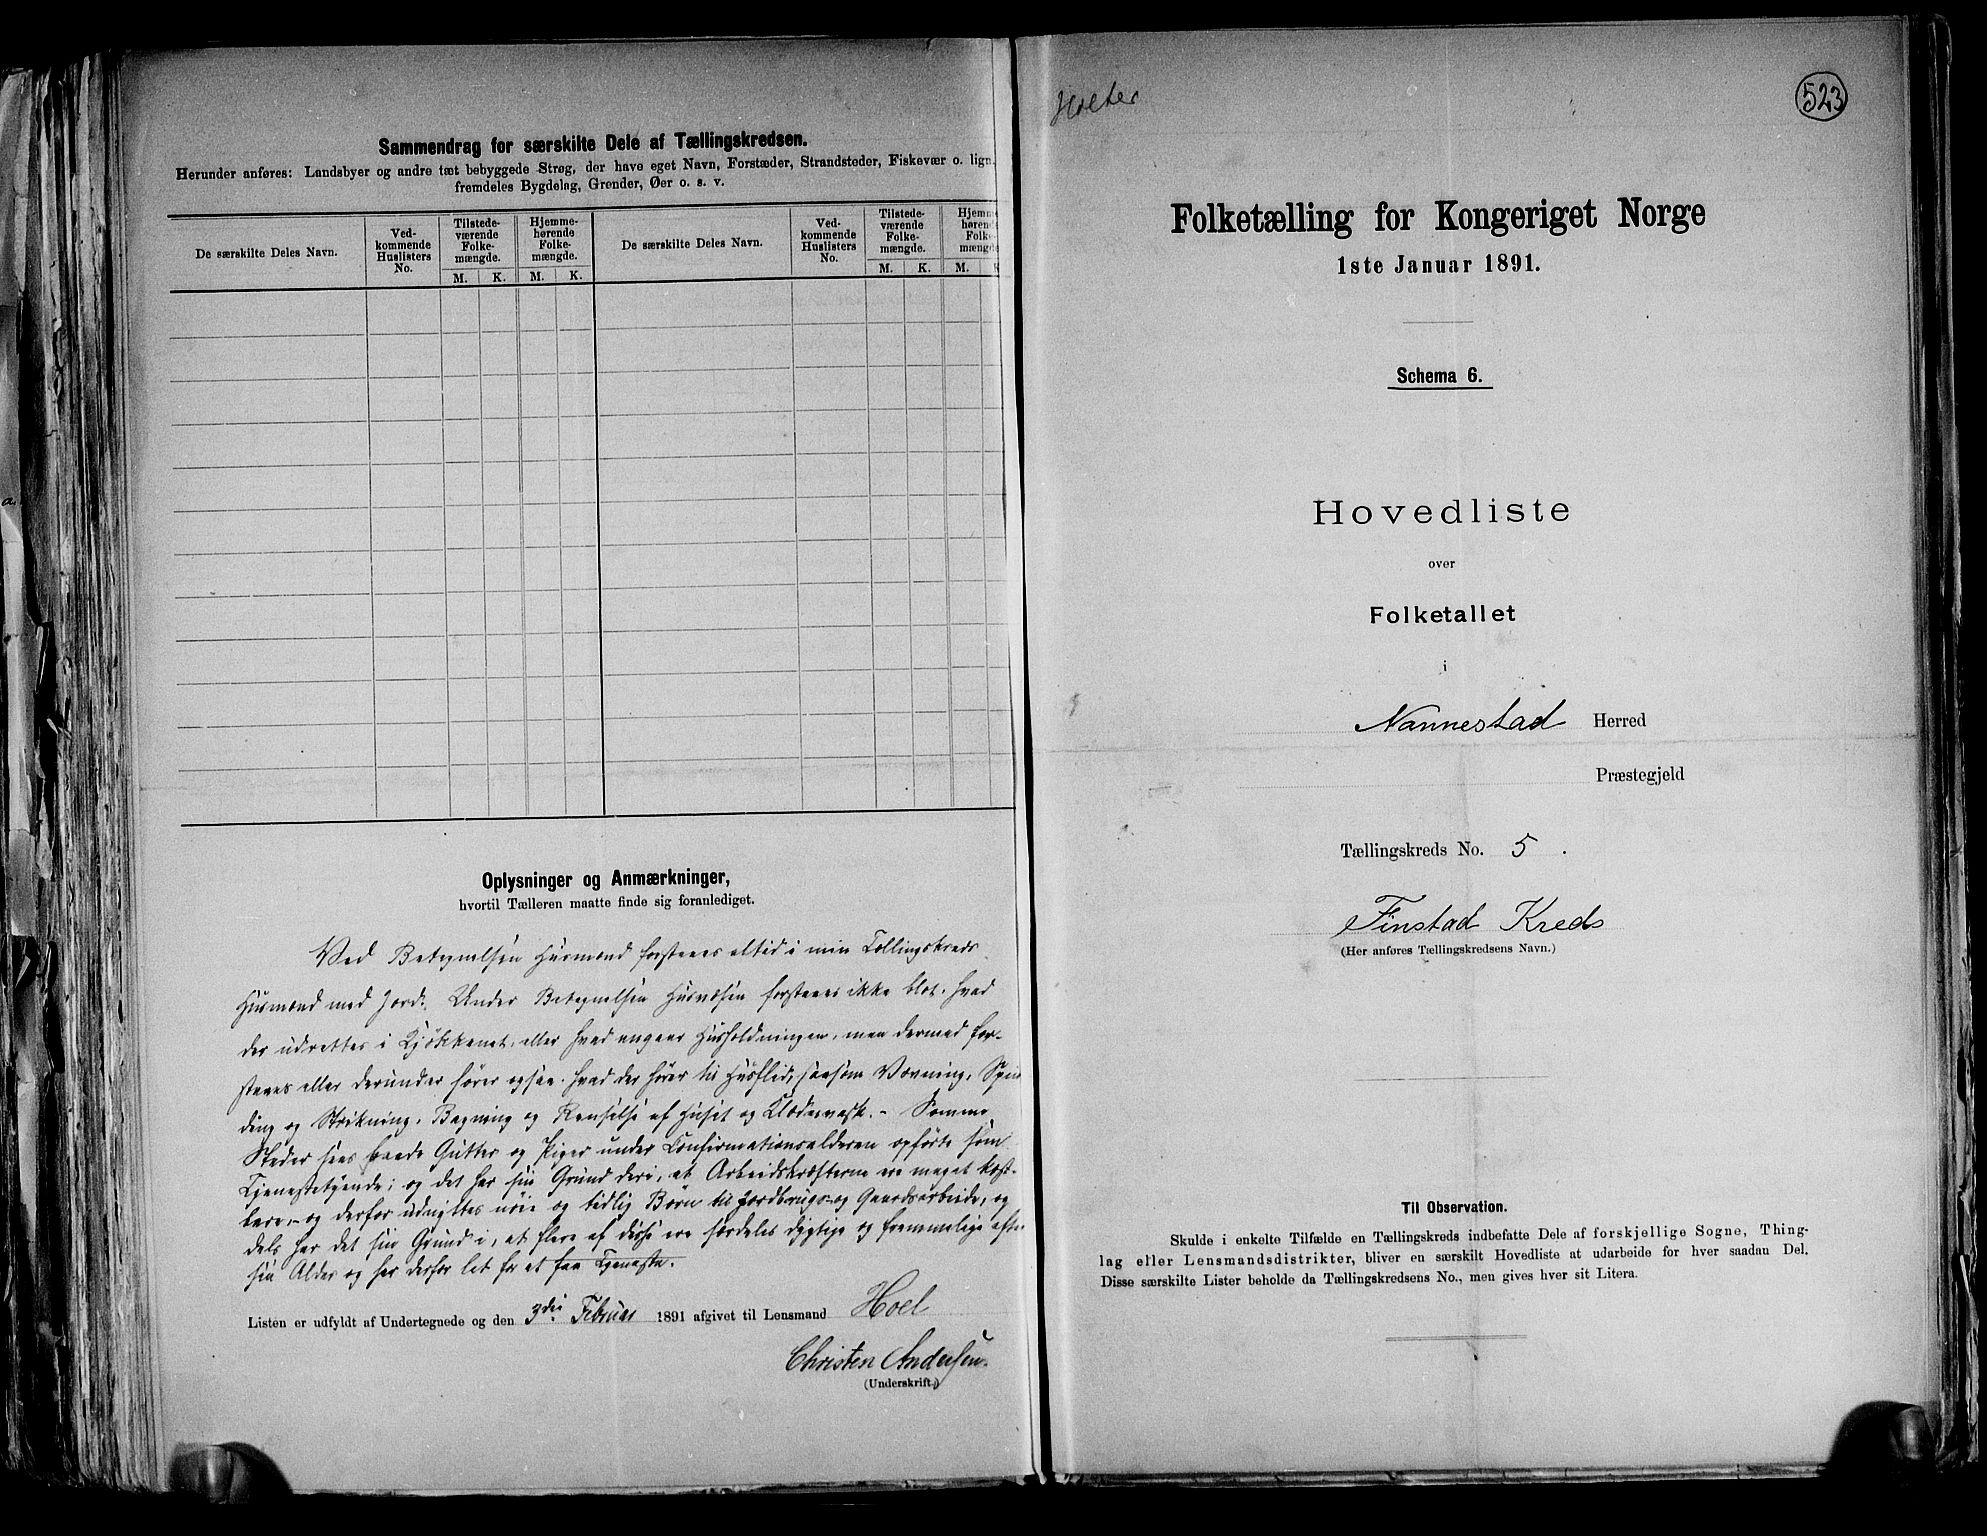 Sammendrag for særskilte Dele af Tællingskredsen.
Herunder anføres: Landsbyer og andre tæt bebyggede Strøg, der have eget Navn, Forstæder, Strandsteder, Fiskevær o. lign.
fremdeles Bygdelag, Grender, Øer o. s. v.
De særskilte Deles Navn. Ved-kommende Huslisters No. Tilstede-værende Folke-mængde. Hjemme-hørende Folke-mængde. De særskilte Deles Navn. Ved-kommende Huslisters No. Tilstede-værende Folke-mængde. Hjemme hørende Folke mængde
M. K. M. K. M. K. M. K
Oplysninger og Anmærkninger,
hvortil Tælleren maatte finde sig foranlediget.
Ved Betegnelsen Husmand forstaaes altid i min Tællingskreds
Husmand med Jord. Under Betegnelsen Husvæsen forstaaes ikke blot, hvad
der udrettes i Kjøkkenet, eller hvad angaar Husholdningen, men dermed for-
staaes eller derunder hører ogsaa, hvad der hører til Husflid, saasom Vævning, Spin
ding og Strikning, Bagning og Renselse af Huset og Klædervask. - Somme
Steder sees baade Gutter og Piger under Confirmationsalderen opførte som
Tjenestetyende; og det har sin Grund deri, at Arbeidskræfterne ere meget kost-
bare, og derfor udnyttes nøie og tidlig Børn til Jordbrugs- og Gaardsarbeide, og
dels har det sin Grund i, at flere af disse ere særdeles dygtige og fremmelige efter
sin Alder og har derfor let for at faa Tjeneste.
Listen er udfyldt af Undertegnede og den 3die Februar 1891 afgivet til Lensmand Hoel
Christen Andersen
(Underskrift.)
Holter
523
Folketælling for Kongeriget Norge
1ste Januar 1891.
Schema 6.
Hovedliste
over
Folketallet
i
Nannestad Herred
Præstegjeld
Tællingskreds No. 5.
Finstad Kreds
(Her anføres Tællingskredsens Navn.)
Til Observation.
Skulde i enkelte Tilfælde en Tællingskreds indbefatte Dele af forskjellige Sogne, Thing-
lag eller Lensmandsdistrikter, bliver en særskilt Hovedliste at udarbeide for hver saadan Del.
Disse særskilte Lister beholde da Tællingskredsens No., men gives hver sit Litera.